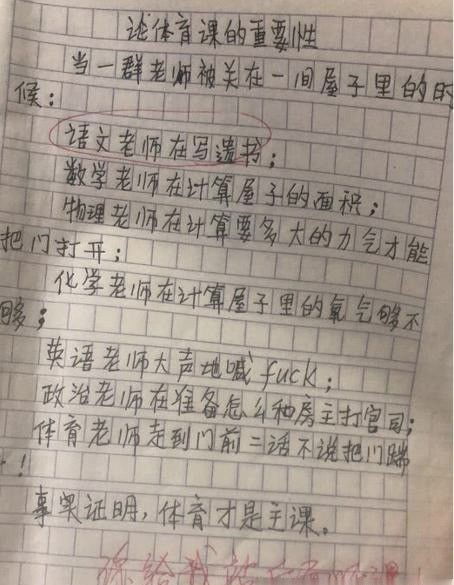 论体育课的重要性
当一群老师被关在一间屋子里的时
候：
语文老师在写遗书；
数学老师在计算屋子的面积；
物理老师在计算要多大的力气才能
把门打开；
化学老师在计算屋子里的氧气够不
够；
英语老师大声地喊fuck；
政治老师在准备怎么和房主打官司；
体育老师走到门前二话不说把门踹
！
事实证明，体育才是主课。
你给我站